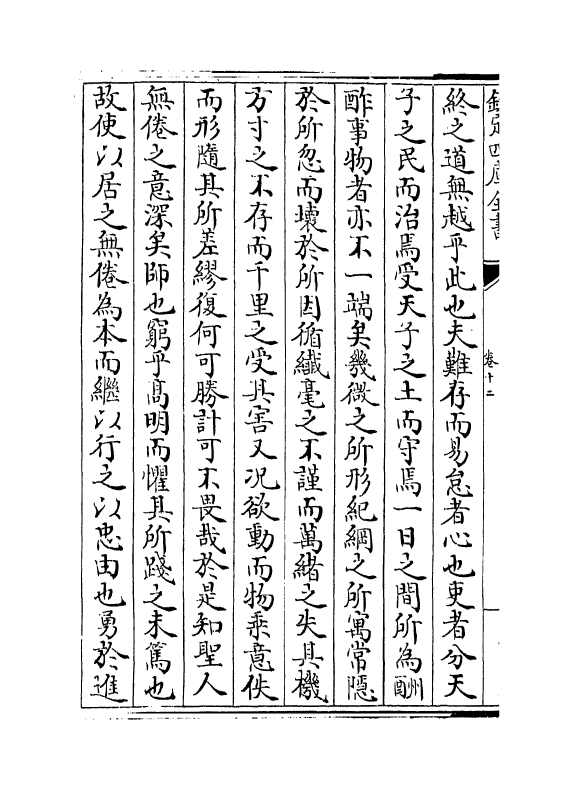 欽定四庫全書
卷十二
終之道無越乎此也夫難存而易怠者心也吏者分天
子之民而治焉受天子之土而守焉一日之間所為酬
酢事物者亦不一端矣幾微之所形紀綱之所寓常隱
於所忽而壞於所因循纎毫之不謹而萬緒之失其機
方寸之不存而千里之受其害又况欲動而物乘意佚
而形隨其所差繆復何可勝計可不畏哉於是知聖人
無倦之意深矣師也窮乎髙明而懼其所踐之未篤也
故使以居之無倦為本而繼以行之以忠由也勇於進